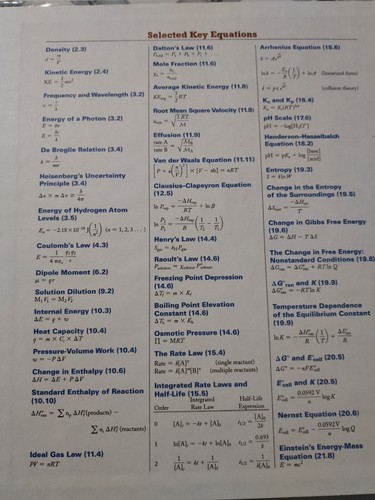 Selected Key Equations
Density (2.3)
d = m/V
Kinetic Energy (2.4)
KE = 1/2 mv²
Frequency and Wavelength (3.2)
Energy of a Photon (3.2)
E = hν
E = hc/λ
De Broglie Relation (3.4)
λ = h/mν
Heisenberg's Uncertainty
Principle (3.4)
Δx × m Δv ≥ h/4π
Energy of Hydrogen Atom
Levels (3.5)
Eₙ = −2.18 × 10⁻¹⁸ J(1/n²) (n = 1, 2, 3 . . . )
Coulomb's Law (4.3)
E = 1/4πε₀ q₁q₂/r
Dipole Moment (6.2)
μ = qr
Solution Dilution (9.2)
M₁V₁ = M₂V₂
Internal Energy (10.3)
ΔE = q + w
Heat Capacity (10.4)
q = m × Cₛ × ΔT
Pressure-Volume Work (10.4)
w = −P ΔV
Change in Enthalpy (10.6)
ΔH = ΔE + P ΔV
Standard Enthalpy of Reaction
(10.10)
ΔH°rxn = Σ nₚ ΔH°f(products) −
Σ nᵣ ΔH°f(reactants)
Ideal Gas Law (11.4)
PV = nRT
Dalton's Law (11.6)
Ptotal = Pₐ + P_b + P_c + . . .
Mole Fraction (11.6)
χₐ = nₐ/ntotal
Average Kinetic Energy (11.8)
KEavg = 3/2 RT
Root Mean Square Velocity (11.8)
urms = √(3RT/ℳ)
Effusion (11.9)
rate A/rate B = √(ℳB/ℳA)
Van der Waals Equation (11.11)
[P + a(n/V)²] × [V − nb] = nRT
Clausius-Clapeyron Equation
(12.5)
ln Pvap = −ΔHvap/RT + ln B
ln P₂/P₁ = −ΔHvap/R (1/T₂ − 1/T₁)
Henry's Law (14.4)
Sgas = kHPgas
Raoult's Law (14.6)
Psolution = χsolvent P°solvent
Freezing Point Depression
(14.6)
ΔTf = m × Kf
Boiling Point Elevation
Constant (14.6)
ΔTb = m × Kb
Osmotic Pressure (14.6)
Π = MRT
The Rate Law (15.4)
Rate = k[A]ⁿ (single reactant)
Rate = k[A]ᵐ[B]ⁿ (multiple reactants)
Integrated Rate Laws and
Half-Life (15.5)
Integrated Half-Life
Order Rate Law Expression
0 [A]t = −kt + [A]₀ t1/2 = [A]₀/2k
1 ln[A]t = −kt + ln[A]₀ t1/2 = 0.693/k
2 1/[A]t = kt + 1/[A]₀ t1/2 = 1/k[A]₀
Arrhenius Equation (15.6)
ln k = −Ea/R (1/T) + ln A (linearized form)
(collision theory)
Kc and Kp (16.4)
Kp = Kc(RT)^Δn
pH Scale (17.6)
pH = −log[H₃O⁺]
Henderson-Hasselbalch
Equation (18.2)
pH = pKa + log [base]/[acid]
Entropy (19.3)
S = k ln W
Change in the Entropy
of the Surroundings (19.5)
ΔSsurr = −ΔHsys/T
Change in Gibbs Free Energy
(19.6)
ΔG = ΔH − T ΔS
The Change in Free Energy:
Nonstandard Conditions (19.8)
ΔGrxn = ΔG°rxn + RT ln Q
ΔG°rxn and K (19.9)
ΔG°rxn = −RT ln K
Temperature Dependence
of the Equilibrium Constant
(19.9)
ln K = −ΔH°rxn/R (1/T) + ΔS°rxn/R
ΔG° and E°cell (20.5)
ΔG° = −nFE°cell
E°cell and K (20.5)
E°cell = 0.0592 V/n log K
Nernst Equation (20.6)
Ecell = E°cell − 0.0592 V/n log Q
Einstein's Energy-Mass
Equation (21.8)
E = mc²